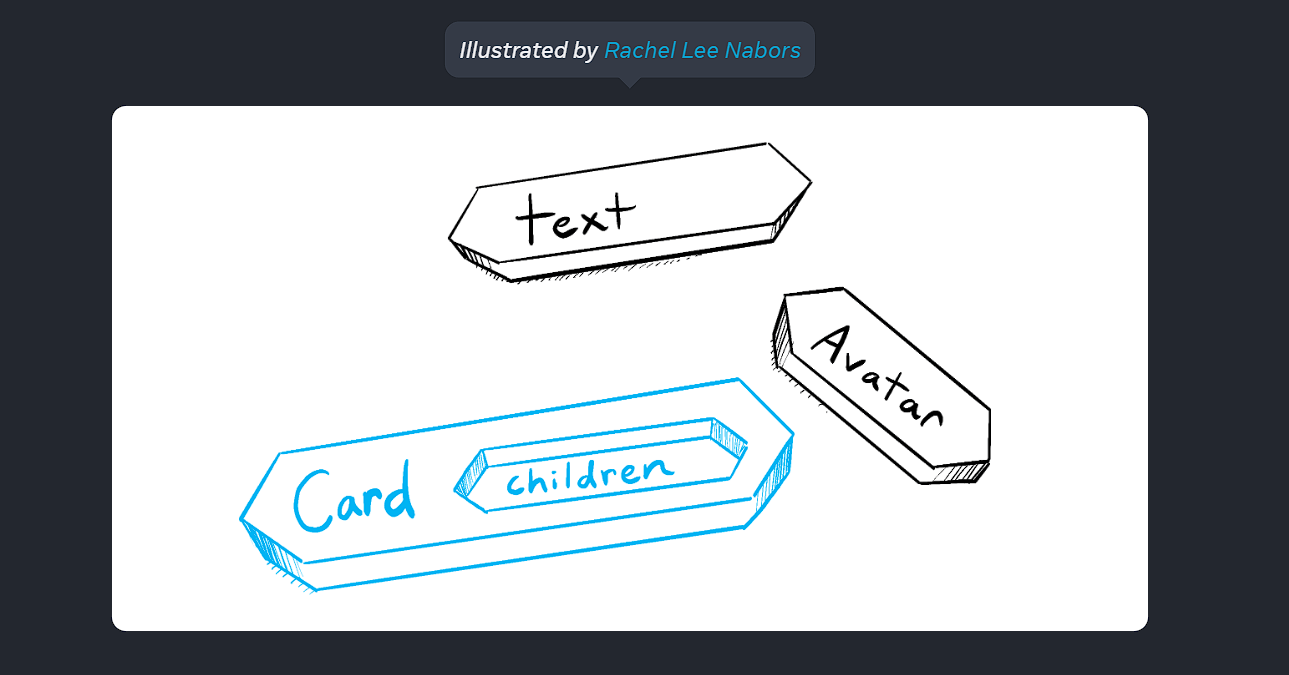 Illustrated by Rachel Lee Nabors
text
Avatar
Card
children